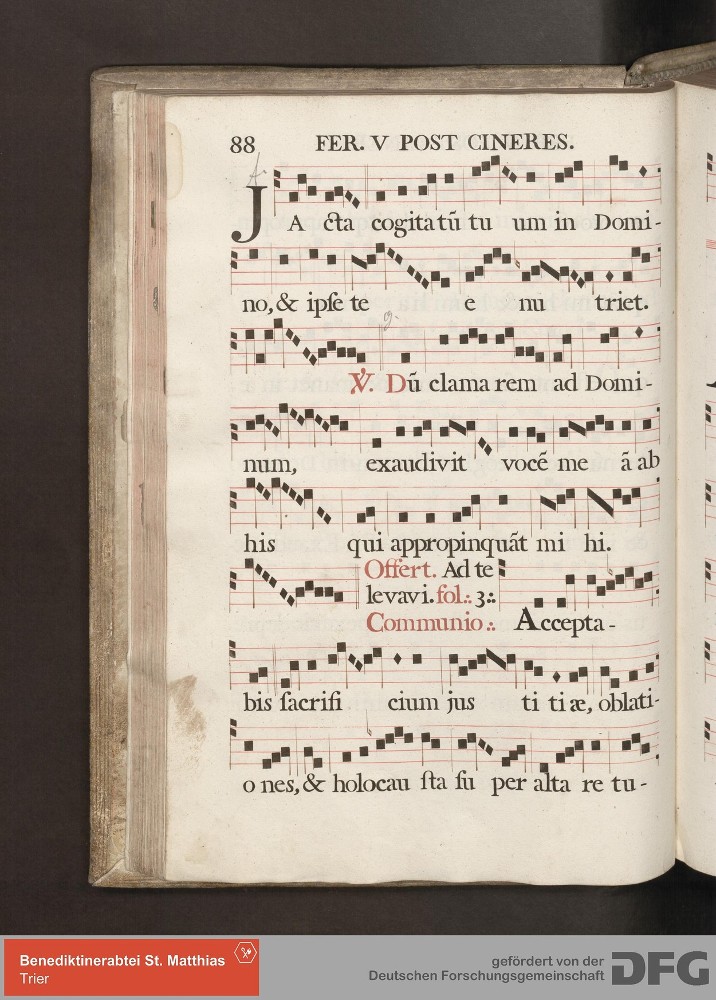 88 FER. V POST CINERES.
JActa cogitatū tuum in Domi-
no, & ipſe te enutriet.
℣. Dū clamarem ad Domi-
num, exaudivit vocē meā ab
his qui appropinquāt mihi.
Offert. Ad te
levavi. fol.: 3.:
Communio.: Accepta-
bis ſacrificium juſtitiæ, oblati-
ones, & holocauſta ſuper altare tu-
Benediktinerabtei St. Matthias
Trier
gefördert von der
Deutschen Forschungsgemeinschaft
DFG